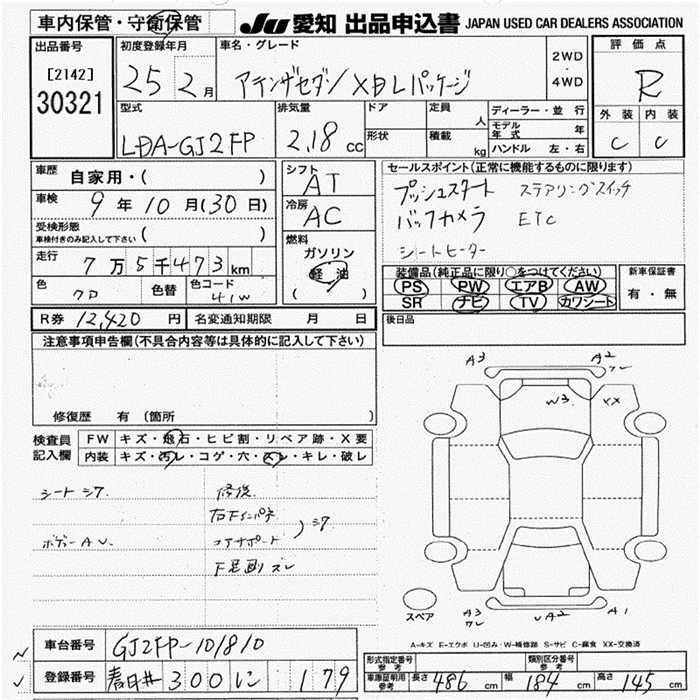 車内保管・守衛保管
JU 愛知 出品申込書 JAPAN USED CAR DEALERS ASSOCIATION
出品番号
[2142]
30321
初度登録年月
25 2月
車名・グレード
アテンザセダン XDLパッケージ
2WD
・
4WD
評価点
R
外装 内装
C C
型式
LDA-GJ2FP
排気量
2.18 cc
ドア
形状
定員 人
積載 kg
ディーラー・並行
モデル年式 年
ハンドル 左・右
車歴 自家用・( )
車検 9年10月(30日)
受検形態
車検付きのみ記入して下さい ( )
走行 7万5千473km
色
色替
色コード
41W
シフト
AT
冷房
AC
燃料
ガソリン
軽油
( )
セールスポイント(正常に機能するものに限ります)
プッシュスタート ステアリングスイッチ
バックカメラ ETC
シートヒーター
装備品(純正品に限り○をつけてください)
PS PW エアB AW
SR ナビ TV カワシート
新車保証書
有・無
R券 12,420円 名変通知期限 月 日
後日品
注意事項申告欄(不具合内容等は具体的に記入して下さい)
修復歴 有(箇所 )
検査員
記入欄
FW キズ・飛石・ヒビ割・リペア跡・X要
内装 キズ・汚レ・コゲ・穴・スレ・キレ・破レ
シート シワ
ボデー AU
修復
右Fインパネ
コアサポート
F足廻りズレ
A3
A2
W3
XX
スペア
A3
UA2
A1
A-キズ E-エクボ U-凹み・W-補修跡 S-サビ C-腐食 XX-交換済
車台番号 GJ2FP-101810
登録番号 春日井 300 に 179
形式指定番号
参考
類別区分番号
参考
車庫証明用
参考
長さ 486 cm 幅 184 cm 高さ 145 cm